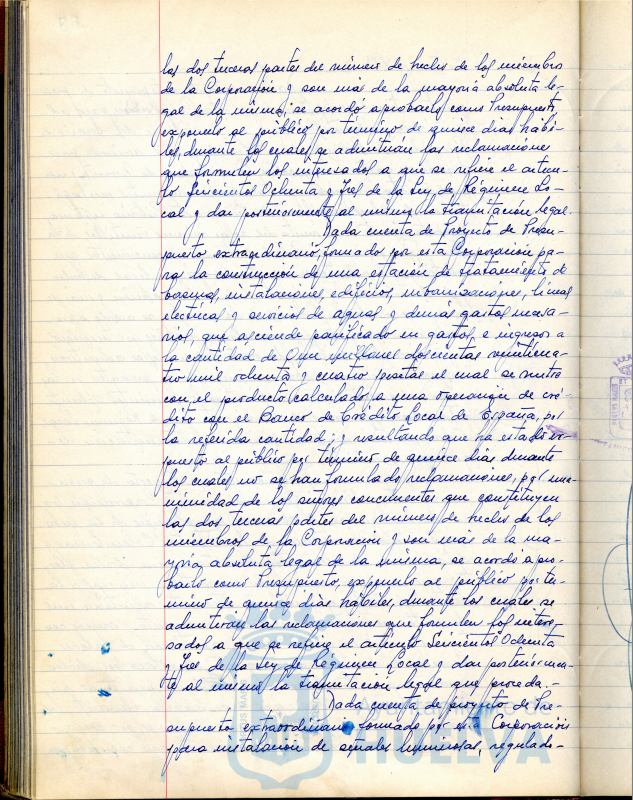 las dos terceras partes del número de hecho de los miembros
de la Corporación y son más de la mayoría absoluta le-
gal de la misma, se acordó aprobarlo como Presupuesto,
exponerlo al público por término de quince días hábi-
les, durante los cuales se admitirán las reclamaciones
que formulen los interesados a que se refiere el artícu-
lo Seiscientos Ochenta y Tres de la Ley de Régimen Lo-
cal y dar posteriormente al mismo la tramitación legal.
Dada cuenta de Proyecto de Presu-
puesto extraordinario, formado por esta Corporación pa-
ra la construcción de una estación de tratamiento de
basuras, instalaciones, edificios, urbanizaciones, líneas
eléctricas y servicios de aguas y demás gastos necesa-
rios, que asciende panificado en gastos e ingresos a
la cantidad de millones doscientas veinticua-
tro mil ochenta y cuatro pesetas el cual se nutre
con el producto calculado a una operación de cré-
dito con el Banco de Crédito Local de España, por
la referida cantidad; y resultando que ha estado ex-
puesto al público por término de quince días durante
los cuales no se han formulado reclamaciones, por una-
nimidad de los señores concurrentes que constituyen
las dos terceras partes del número de hecho de los
miembros de la Corporación y son más de la ma-
yoría absoluta legal de la misma, se acordó apro-
barlo como Presupuesto, exponerlo al público por tér-
mino de quince días hábiles, durante los cuales se
admitirán las reclamaciones que formulen los intere-
sados a que se refiere el artículo Seiscientos Ochenta
y Tres de la Ley de Régimen Local y dar posteriormen-
te al mismo la tramitación legal que proceda.-
Dada cuenta de proyecto de Pre-
supuesto extraordinario formado por esta Corporación
para instalación de señales luminosas, regulado-
HUELVA